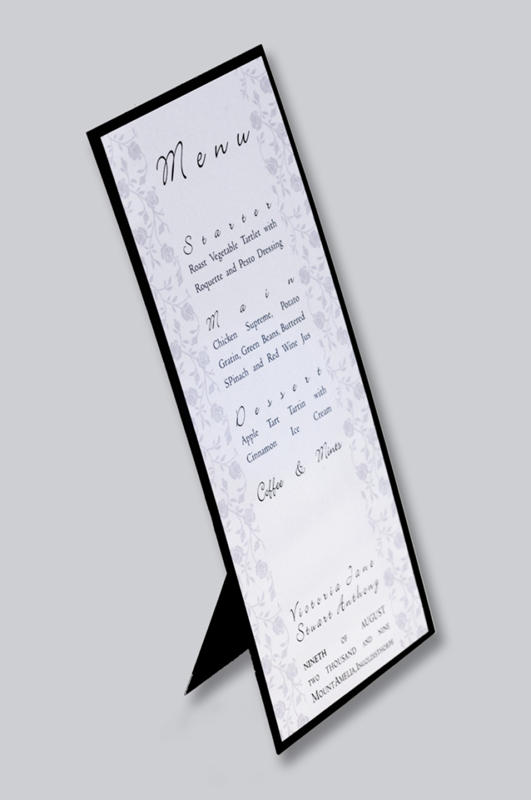 Menu
Starter
Roast Vegetable Tartlet with
Roquette and Pesto Dressing
Main
Chicken Supreme, Potato
Gratin, Green Beans, Buttered
SPinach and Red Wine Jus
Dessert
Apple Tart Tartin with
Cinnamon Ice Cream
Coffee & Mints
Victoria Jane
Stuart Anthony
NINETH OF AUGUST
TWO THOUSAND AND NINE
MOUNT AMELIA, INGOLDISTHORPE